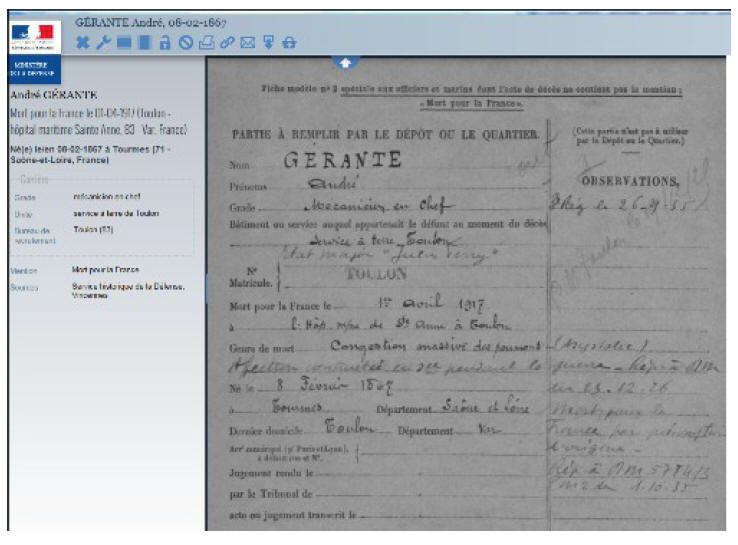 GÉRANTE André, 08-02-1867
MINISTÈRE
DE LA DÉFENSE
André GÉRANTE
Mort pour la France le 01-04-1917 (Toulon -
hôpital maritime Sainte Anne, 83 - Var, France)
Né(e) le/en 08-02-1867 à Tournus (71 -
Saône-et-Loire, France)
Carrière
Grade mécanicien en chef
Unité service à terre de Toulon
Bureau de recrutement Toulon (83)
Mention Mort pour la France
Sources Service historique de la Défense,
Vincennes
Fiche modèle n° 2 spéciale aux officiers et marins dont l'acte de décès ne contient pas la mention :
« Mort pour la France ».
PARTIE À REMPLIR PAR LE DÉPÔT OU LE QUARTIER.
(Cette partie n'est pas à utiliser
par le Dépôt ou le Quartier.)
Nom GÉRANTE
OBSERVATIONS.
Prénoms André
Grade Mécanicien en Chef
Bâtiment ou service auquel appartenait le défunt au moment du décès
Service à terre Toulon
Etat major "Jules Ferry"
N°
Matricule. TOULON
Mort pour la France le 1er avril 1917
à l'Hôp. mme de Ste Anne à Toulon
Genre de mort Congestion massive des poumons (Asystolie)
Affection contractée en sce pendant la guerre - Rép. à DM
du 23.12.26
Né le 8 Février 1867
à Tournus Département Saône et Loire
Mort pour la
Dernier domicile Toulon Département Var
France par présomption
d'origine -
Arrt municipal (pr Paris et Lyon),
à défaut rue et N°.
Jugement rendu le
par le Tribunal de
acte ou jugement transcrit le